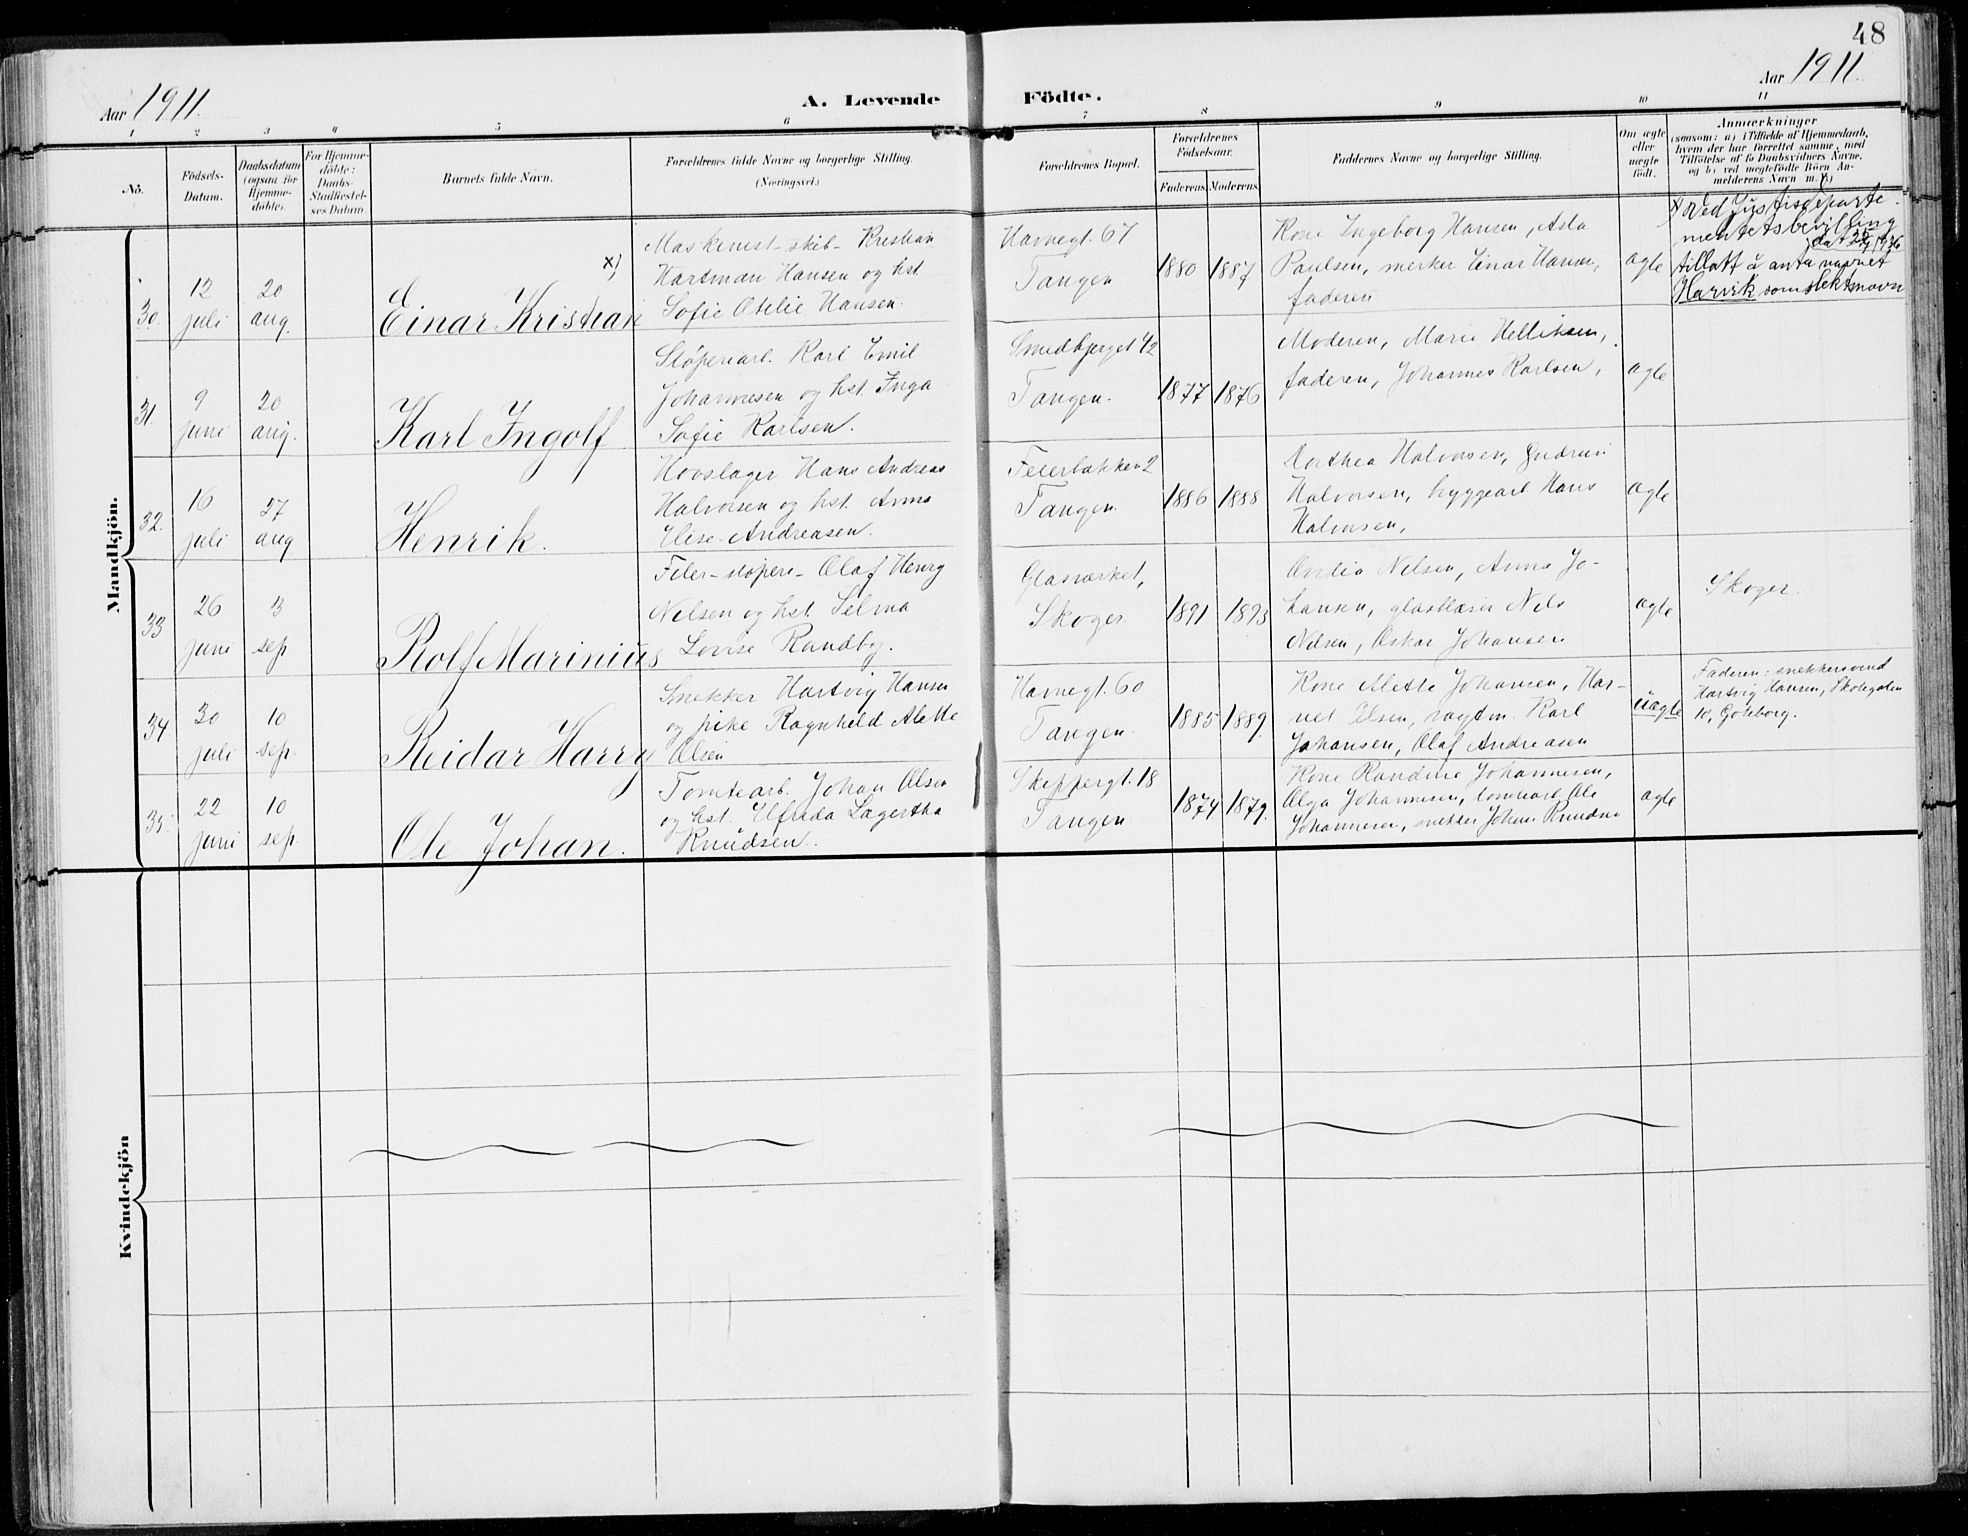 48
Aar 1911.
A. Levende Födte.
Aar 1911.
1 2 3 4 5 6 7 8 9 10 11
No.
Födsels-
Datum.
Daabsdatum
(ogsaa for
Hjemme-
döbte).
For Hjemme-
döbte:
Daabs-
Stadfæstel-
ses Datum
Barnets fulde Navn.
Forældrenes fulde Navne og borgerlige Stilling.
(Næringsvei.)
Forældrenes Bopæl.
Forældrenes
Födselsaar.
Faderens. Moderens.
Faddernes Navne og borgerlige Stilling.
Om ægte
eller
uægte
födt.
Anmærkninger
(saasom: a) i Tilfælde af Hjemmedaab,
hvem der har forrettet samme, med
Tilföielse af to Daabsvidners Navne,
og b) ved uægtefödte Börn An-
melderens Navn m. v.)
Mandkjön.
30.
12
juli
20
aug.
Einar Kristian x)
Maskinist-skib- Kristian
Hartman Hansen og hst.
Sofie Otelie Hansen.
Havnegt. 67
Tangen
1880 1887
Kone Ingeborg Hansen, Asta
Paulsen, merker Einar Hansen,
faderen
ægte
x) Ved Justisdeparte-
mentets bevilling
dat
tillatt å anta navnet
Harvik som slektsnavn
31.
9
juni
20
aug.
Karl Ingolf
Støperiarb. Karl Emil
Johannesen og hst. Inga
Sofie Karlsen.
Smedbjerget 42
Tangen.
1877 1876
Moderen, Marie Helliksen,
faderen, Johannes Karlsen,
ægte
32.
16
juli
27
aug
Henrik.
Hovslager Hans Andreas
Halvorsen og hst. Anna
Elise Andreasen.
Feierbakken 2
Tangen.
1886 1888
Dorthea Halvorsen, Gudrun
Halvorsen, bryggearb. Hans
Halvorsen,
ægte
33
26
juni
3
sep
Rolf Marinius
Filer-støpere- Olaf Henry
Nilsen og hst. Selma
Lovise Randby.
Glasværket,
Skoger
1891 1893
Nilsen, Anna Jo-
hansen, Nils
Nilsen, Oskar Johansen
ægte
Skoger.
34
30
juli
10
sep.
Reidar Harry
Snekker Hartvig Hansen
og pike Ragnhild Alette
Olsen
Havnegt. 60
Tangen.
1885 1889.
Kone Mette Johansen, Har-
riet Olsen, vogtm. Karl
Johansen, Olaf Andreasen
uægte
Faderen: snekkersvend
Hartvig Hansen, Skolegaten
10, Göteborg.
35.
22
juni
10
sep.
Ole Johan.
Tomtearb. Johan Olsen
og hst. Elfrida Lagertha
Knudsen.
Skippergt. 18
Tangen
1874 1879.
Kone Randine Johannesen,
Olga Johannesen, tomtearb. Ole
Johannesen, snekker Johan Knudsen
ægte
Kvindekjön